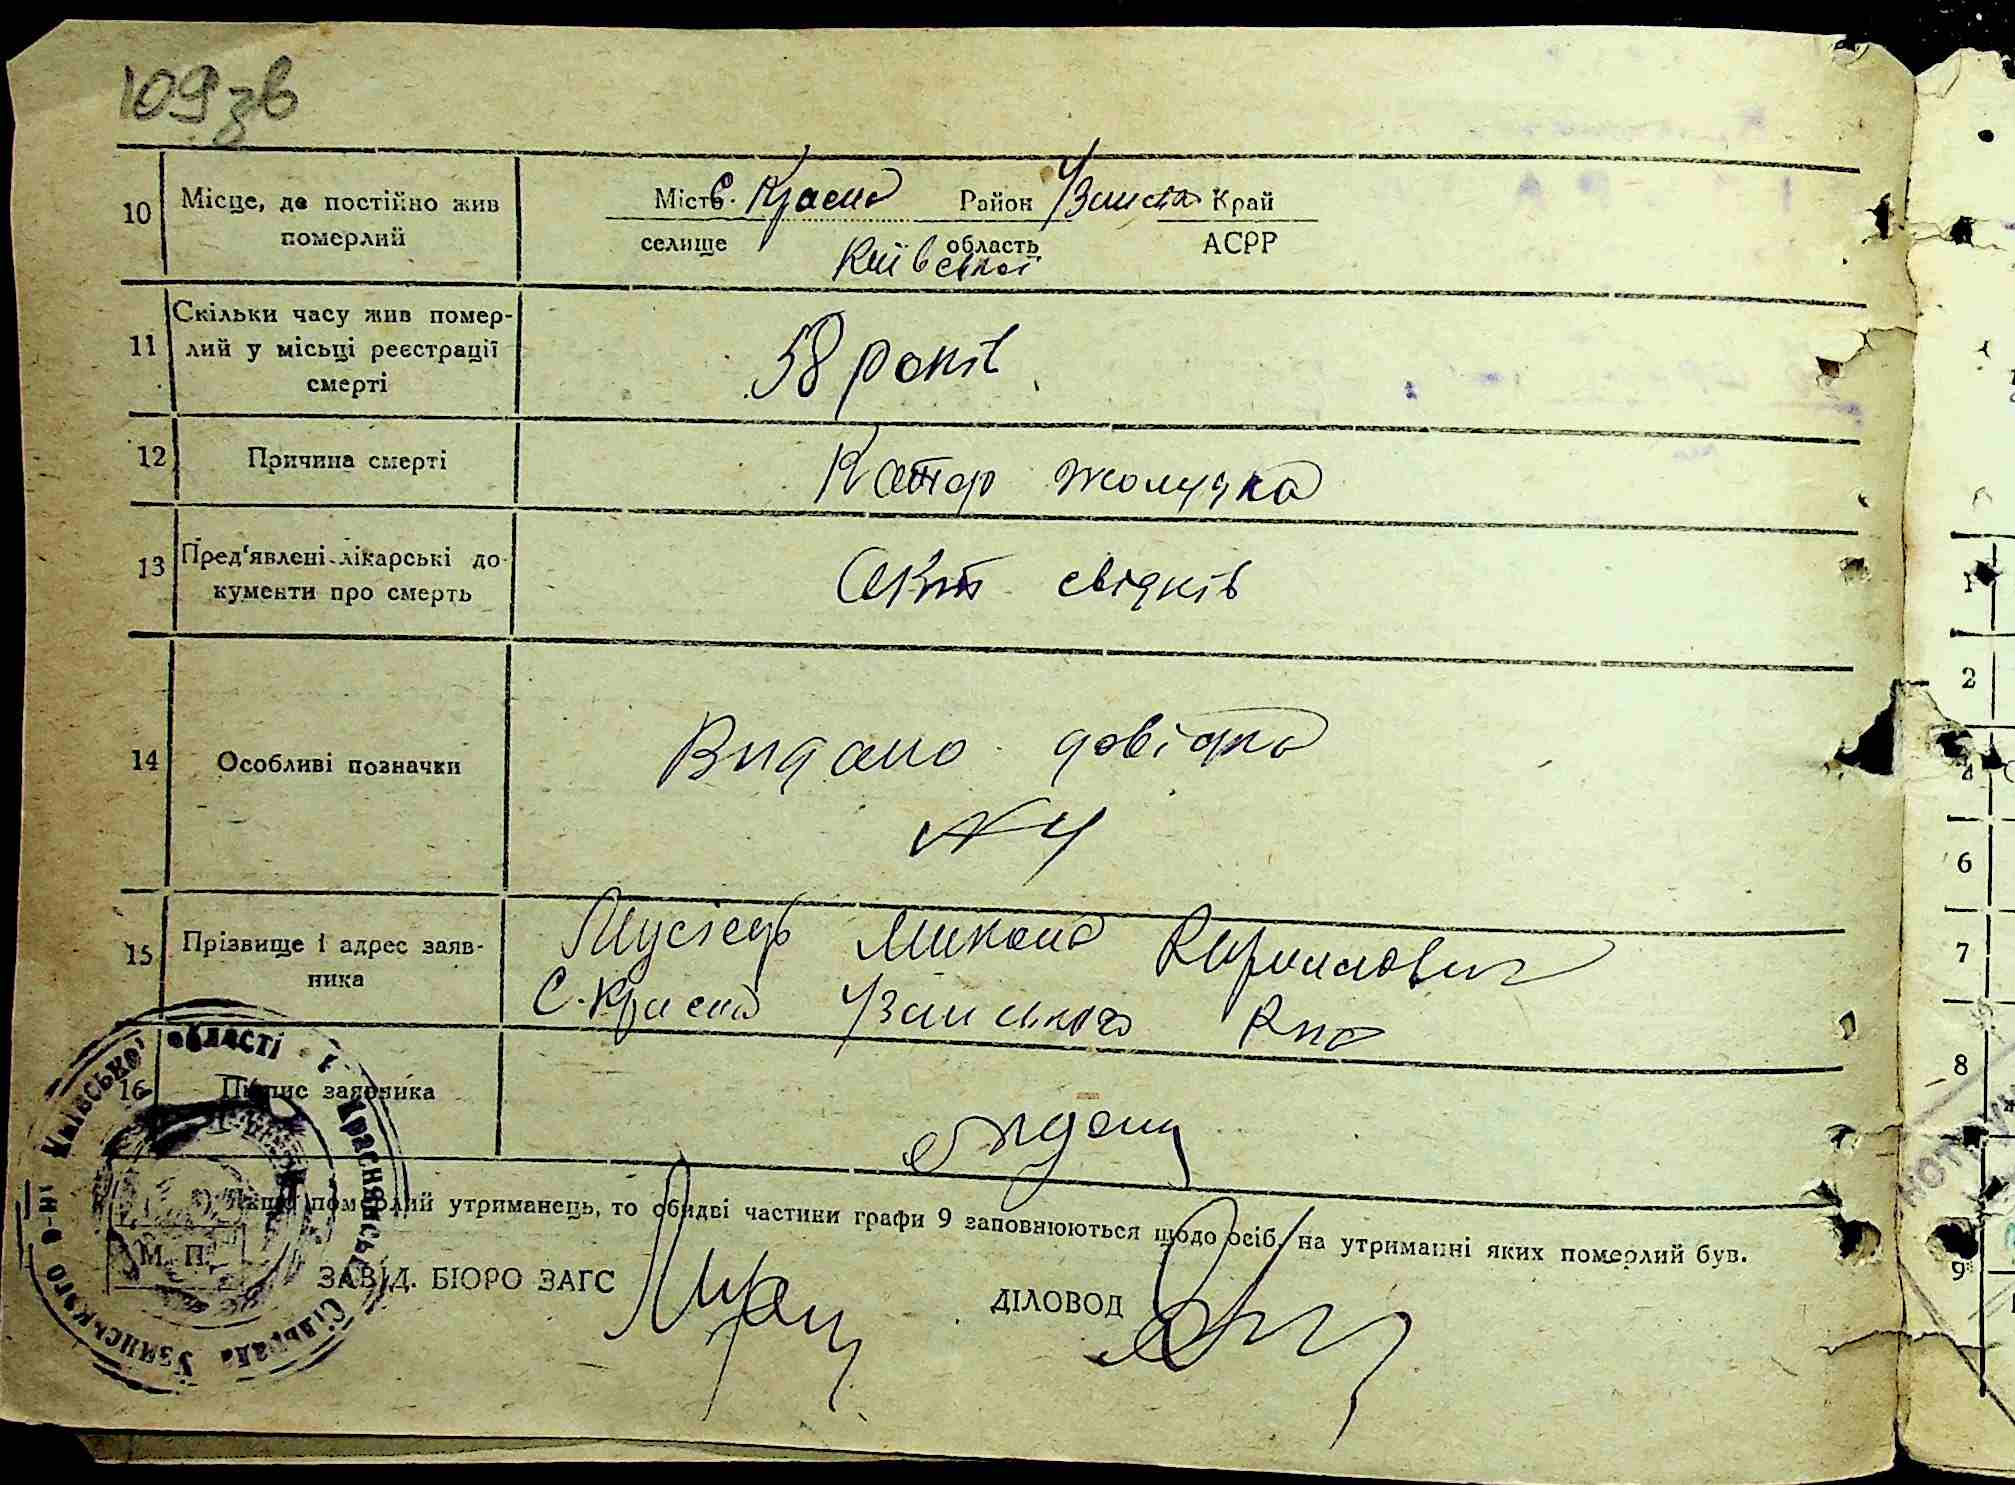 109зв
10 Місце, де постійно жив померлий
Місто с. Красно Район Узинська Край
селище Київської область АСРР
11 Скільки часу жив померлий у місьці реєстрації смерті
58 років
12 Причина смерті
Катар жолудка
13 Пред'явлені лікарські документи про смерть
Акт свідків
14 Особливі позначки
Видано довідка
№ 4
15 Прізвище і адрес заявника
Мусієць Микола Кирилович
С. Красно Узинського
16 Підпис заявника
Якщо померлий утриманець, то обидві частини графи 9 заповнюються щодо осіб, на утриманні яких померлий був.
М. П.
ЗАВІД. БІОРО ЗАГС
ДІЛОВОД
Краснянська Сільрада Узинського р-ну Київської області
1
2
4
6
7
8
9